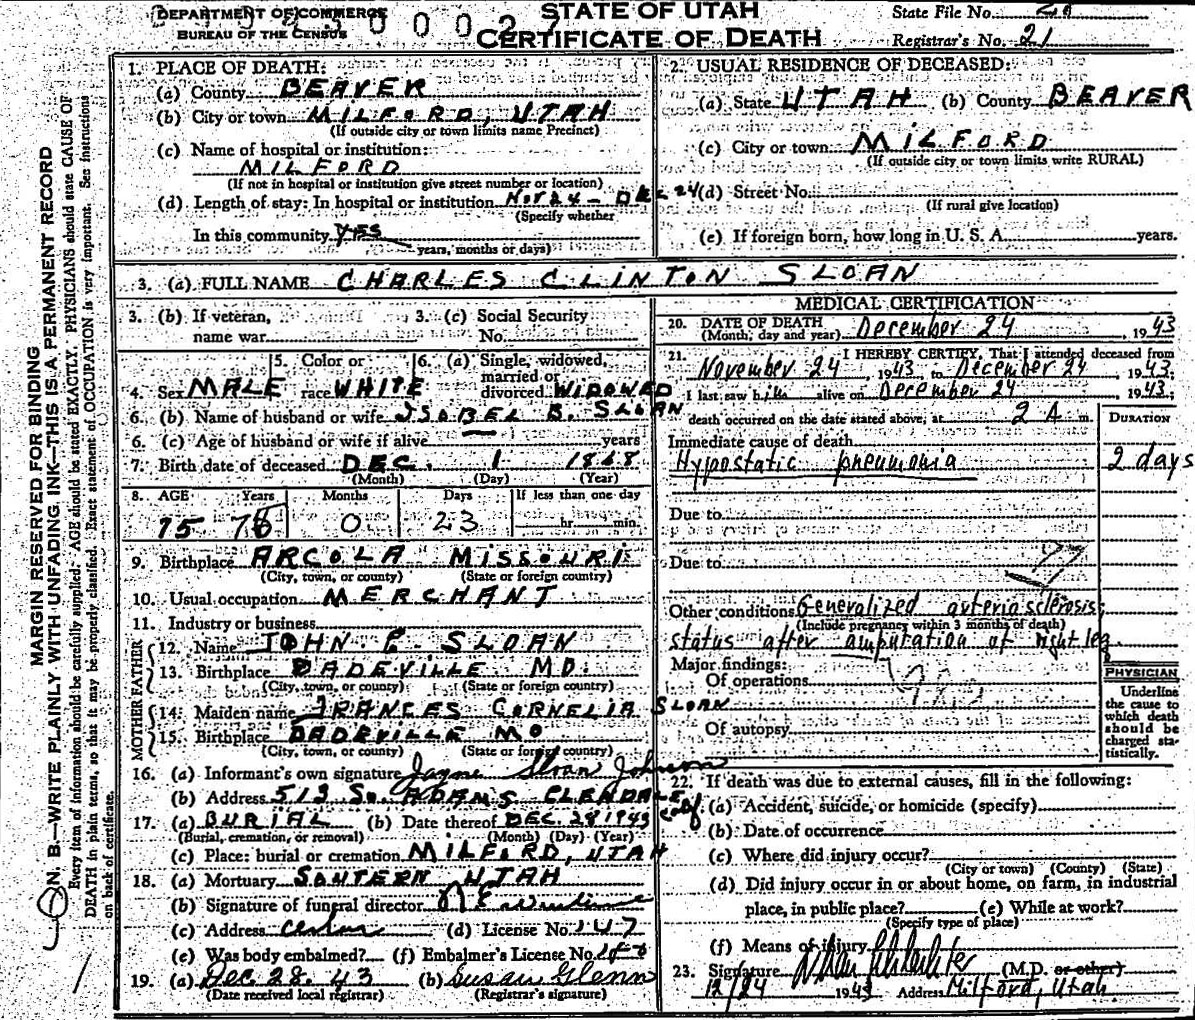 DEPARTMENT OF COMMERCE
BUREAU OF THE CENSUS
STATE OF UTAH
CERTIFICATE OF DEATH
State File No.
Registrar's No. 21
MARGIN RESERVED FOR BINDING
N. B.—WRITE PLAINLY WITH UNFADING INK—THIS IS A PERMANENT RECORD
Every item of information should be carefully supplied. AGE should be stated EXACTLY. PHYSICIANS should state CAUSE OF
DEATH in plain terms, so that it may be properly classified. Exact statement of OCCUPATION is very important. See instructions
on back of certificate.
1. PLACE OF DEATH:
(a) County BEAVER
(b) City or town MILFORD, UTAH
(If outside city or town limits name Precinct)
(c) Name of hospital or institution:
MILFORD
(If not in hospital or institution give street number or location)
(d) Length of stay: In hospital or institution NOV 24 - DEC 24
(Specify whether
In this community YES
years, months or days)
2. USUAL RESIDENCE OF DECEASED:
(a) State UTAH (b) County BEAVER
(c) City or town MILFORD
(If outside city or town limits write RURAL)
(d) Street No.
(If rural give location)
(e) If foreign born, how long in U. S. A. years.
3. (a) FULL NAME CHARLES CLINTON SLOAN
3. (b) If veteran,
name war
3. (c) Social Security
No.
4. Sex MALE
5. Color or
race WHITE
6. (a) Single, widowed,
married or
divorced WIDOWED
6. (b) Name of husband or wife ISOBEL B. SLOAN
6. (c) Age of husband or wife if alive years
7. Birth date of deceased DEC. 1 1868
(Month) (Day) (Year)
8. AGE Years Months Days If less than one day
75 0 23 hr. min.
9. Birthplace ARCOLA MISSOURI
(City, town, or county) (State or foreign country)
10. Usual occupation MERCHANT
11. Industry or business
FATHER
12. Name JOHN E. SLOAN
13. Birthplace DADEVILLE MO.
(City, town, or county) (State or foreign country)
MOTHER
14. Maiden name FRANCES CORNELIA SLOAN
15. Birthplace DADEVILLE MO
(City, town, or county) (State or foreign country)
16. (a) Informant's own signature Jayne Sloan Johnson
(b) Address 513 So. ADAMS GLENDALE Calif
17. (a) BURIAL (b) Date thereof DEC. 28 1943
(Burial, cremation, or removal) (Month) (Day) (Year)
(c) Place: burial or cremation MILFORD, UTAH
18. (a) Mortuary SOUTERN UTAH
(b) Signature of funeral director
(c) Address Cedar (d) License No. 147
(e) Was body embalmed? (f) Embalmer's License No.
19. (a) Dec 28. 43 (b) Susan Glenn
(Date received local registrar) (Registrar's signature)
MEDICAL CERTIFICATION
20. DATE OF DEATH
(Month, day and year) December 24, 1943
21. I HEREBY CERTIFY, That I attended deceased from
November 24, 1943 to December 24, 1943;
I last saw him alive on December 24 1943;
death occurred on the date stated above, at 2 A m.
DURATION
Immediate cause of death
Hypostatic pneumonia 2 days
Due to
Due to
Other conditions Generalized arteriosclerosis;
(Include pregnancy within 3 months of death)
status after amputation of right leg
Major findings:
Of operations
Of autopsy
PHYSICIAN
Underline
the cause to
which death
should be
charged sta-
tistically.
22. If death was due to external causes, fill in the following:
(a) Accident, suicide, or homicide (specify)
(b) Date of occurrence
(c) Where did injury occur?
(City or town) (County) (State)
(d) Did injury occur in or about home, on farm, in industrial
place, in public place? (e) While at work?
(Specify type of place)
(f) Means of injury
23. Signature (M.D. or other)
12/24 1943 Address Milford, Utah